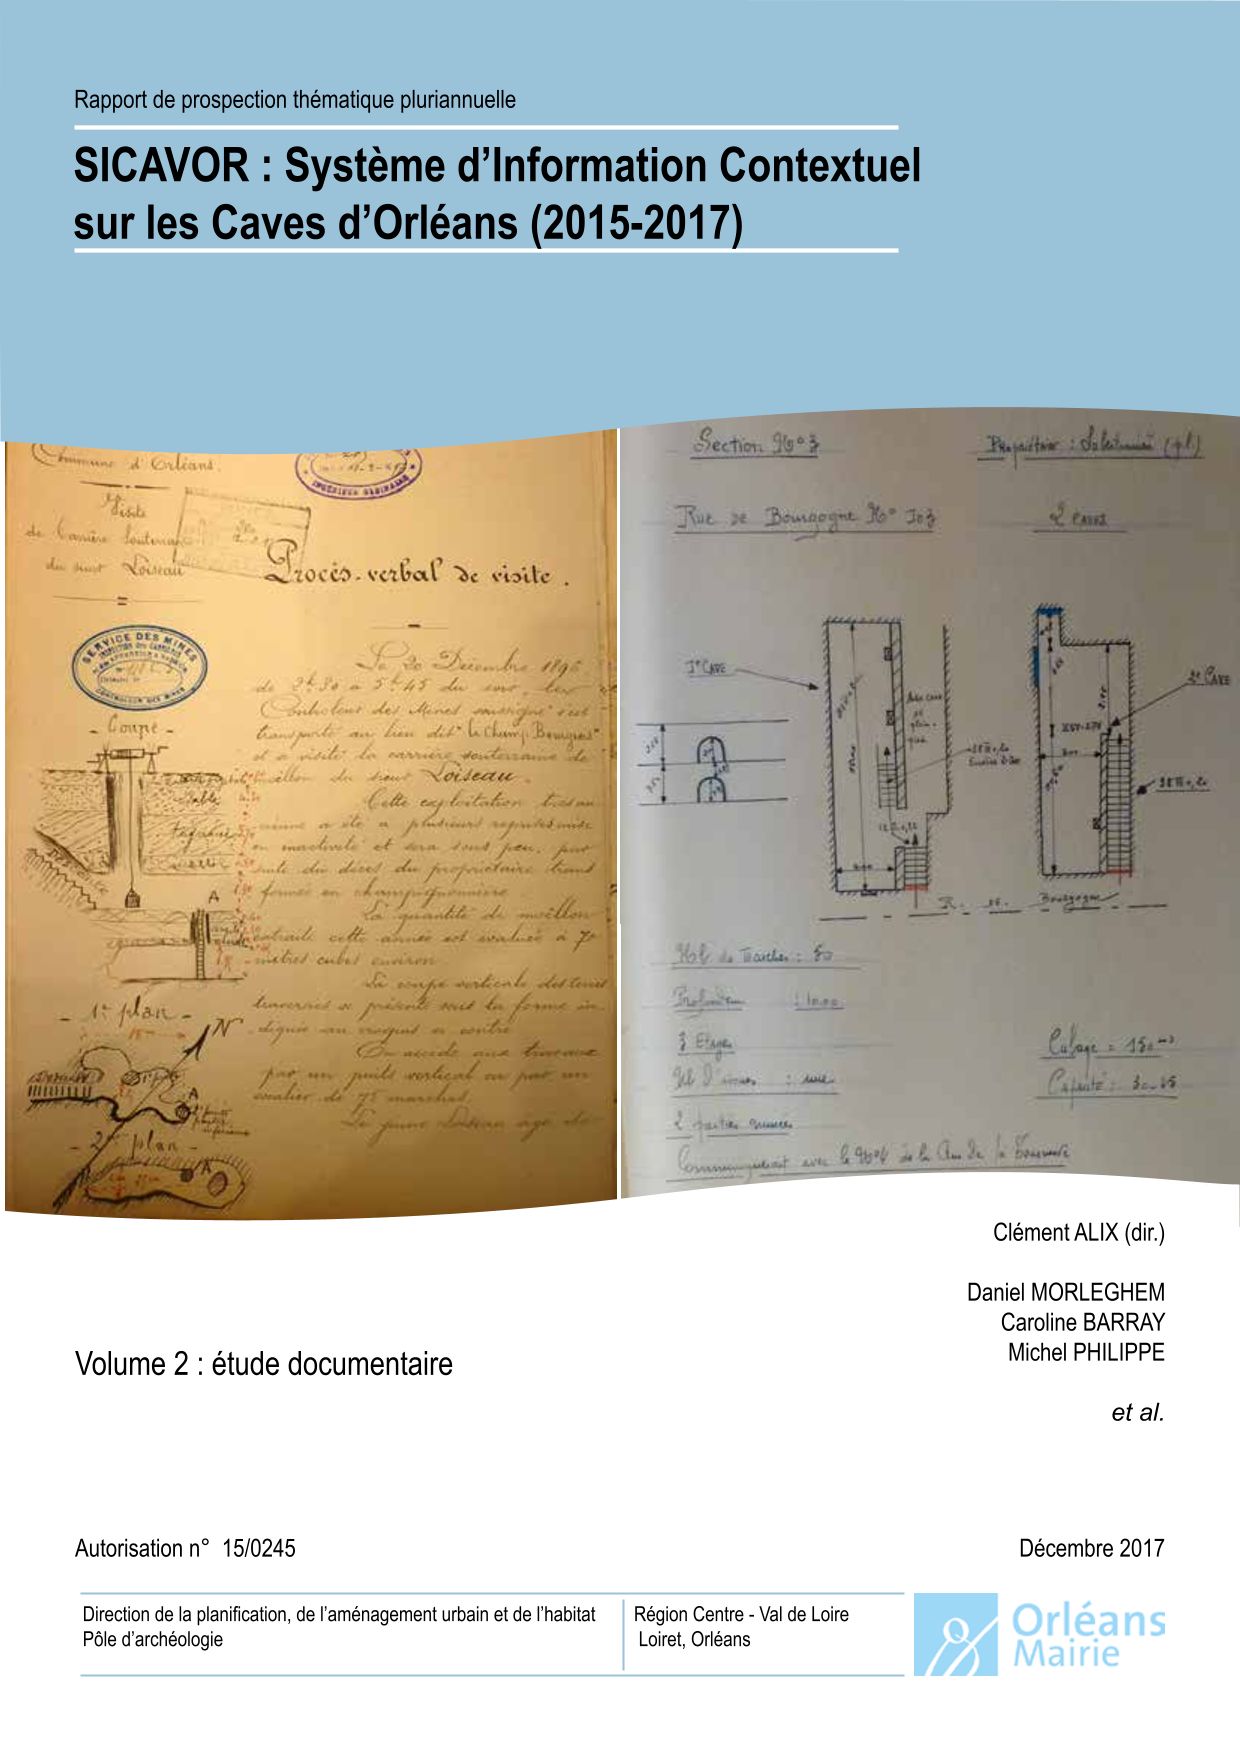 Rapport de prospection thématique pluriannuelle
SICAVOR : Système d’Information Contextuel
sur les Caves d’Orléans (2015-2017)
Commune d'Orléans.
Visite
de Carrière Souterraine
du sieur Loiseau
Procès-verbal de visite.
SERVICE DES MINES
CONTROLEUR DES MINES
INGÉNIEUR ORDINAIRE
Le 20 Décembre 1896
de 3h 30 à 5h 45 du soir, les
Contrôleur des Mines soussigné s'est
transporté au lieu dit "le Champ Bourgeois"
et a visité la carrière souterraine de
moillon du sieur Loiseau.
Cette exploitation
a été à plusieurs reprises mise
en inactivité et sera sous peu, par
suite du décès du propriétaire trans
formée en champignonnière
La quantité de moëllon
extraite cette année est évaluée à 70
mètres cubes environ.
La coupe verticale des terres
traversées se présente sous la forme in
diquée au croquis ci contre
On accède aux travaux
par un puits vertical ou par un
escalier de 75 marches.
Le jeune Loiseau âgé de
- Coupe -
Sable
A
- 1er plan -
N
A
- 2e plan -
A
Section No 3
Propriétaire :
Rue de Bourgogne No 103
2 caves
1e CAVE
2e CAVE
R. de Bourgogne
Nb de Marches : 50
Profondeur : 10.00
3 Etages
Nb d'issues : une
2 parties murées
Cubage = 150 m3
Capacité : 30-45
Communiquerait avec le No 4 de la Rue de la
Clément ALIX (dir.)
Daniel MORLEGHEM
Caroline BARRAY
Michel PHILIPPE
et al.
Volume 2 : étude documentaire
Autorisation n° 15/0245
Décembre 2017
Direction de la planification, de l’aménagement urbain et de l’habitat
Pôle d’archéologie
Région Centre - Val de Loire
Loiret, Orléans
Orléans
Mairie